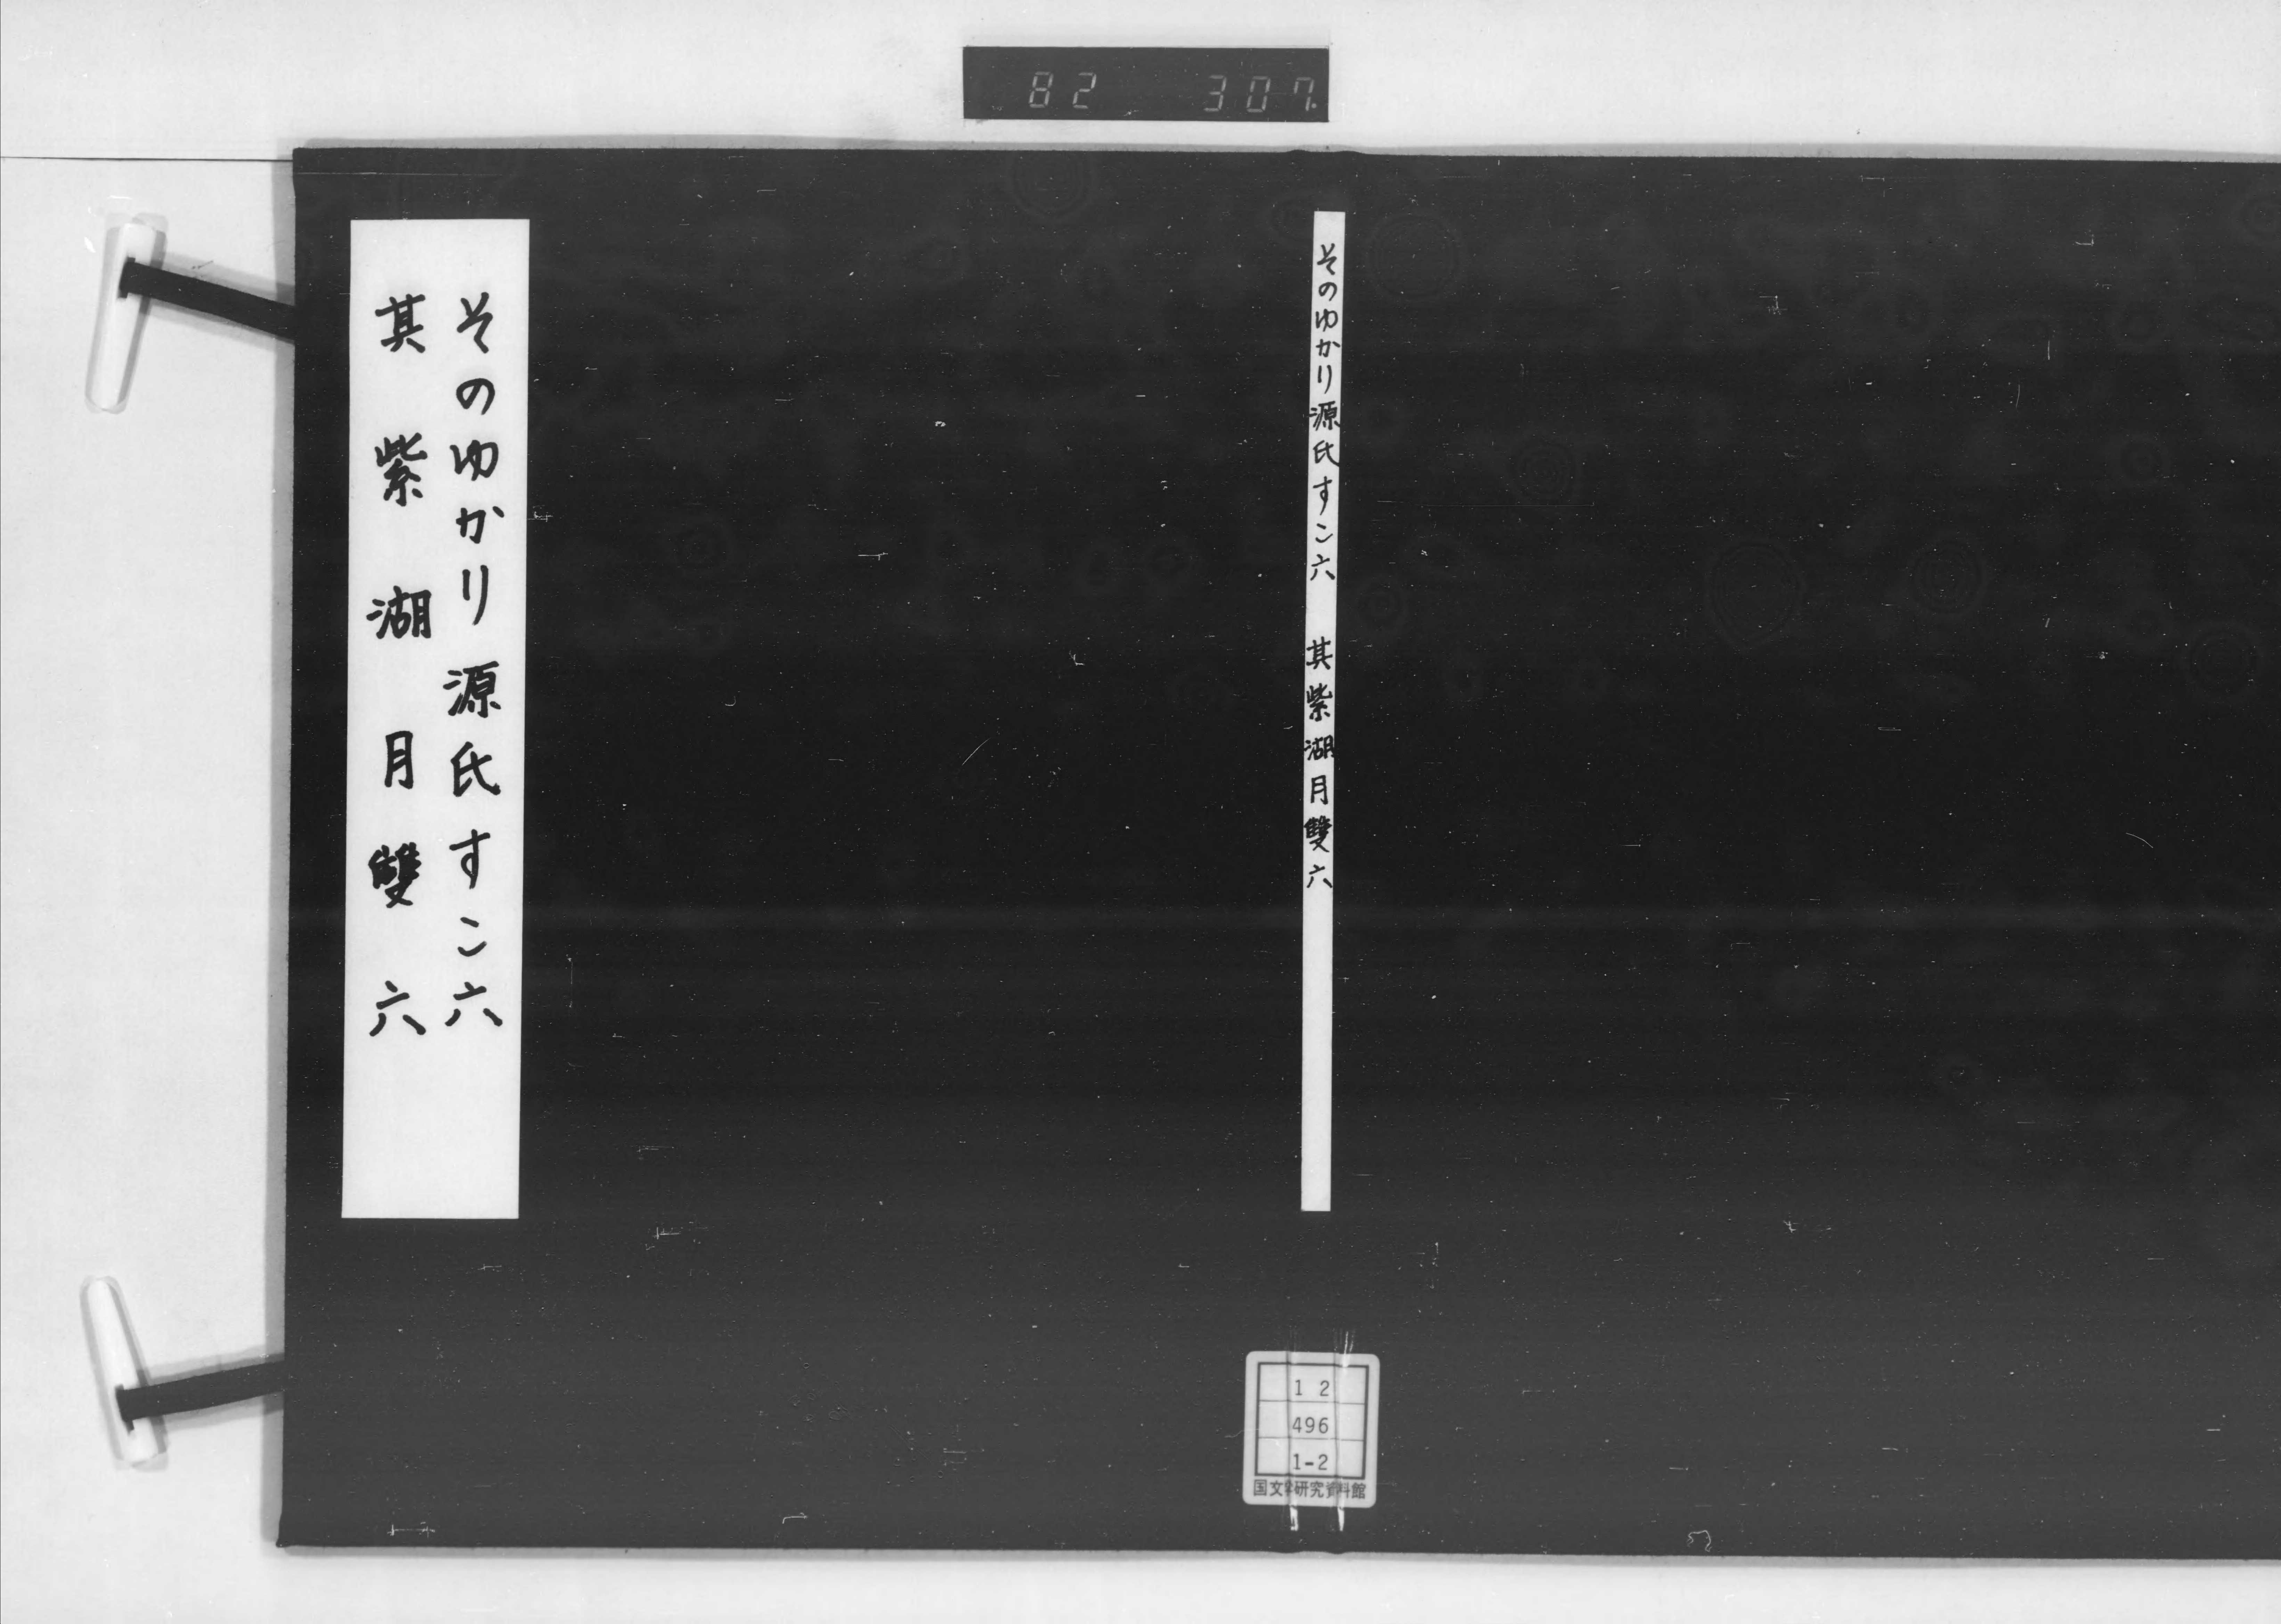 82 307.
そのゆかり源氏すこ六 其紫湖月雙六
そのゆかり源氏すこ六
其紫湖月雙六
12
496
1-2
国文学研究資料館